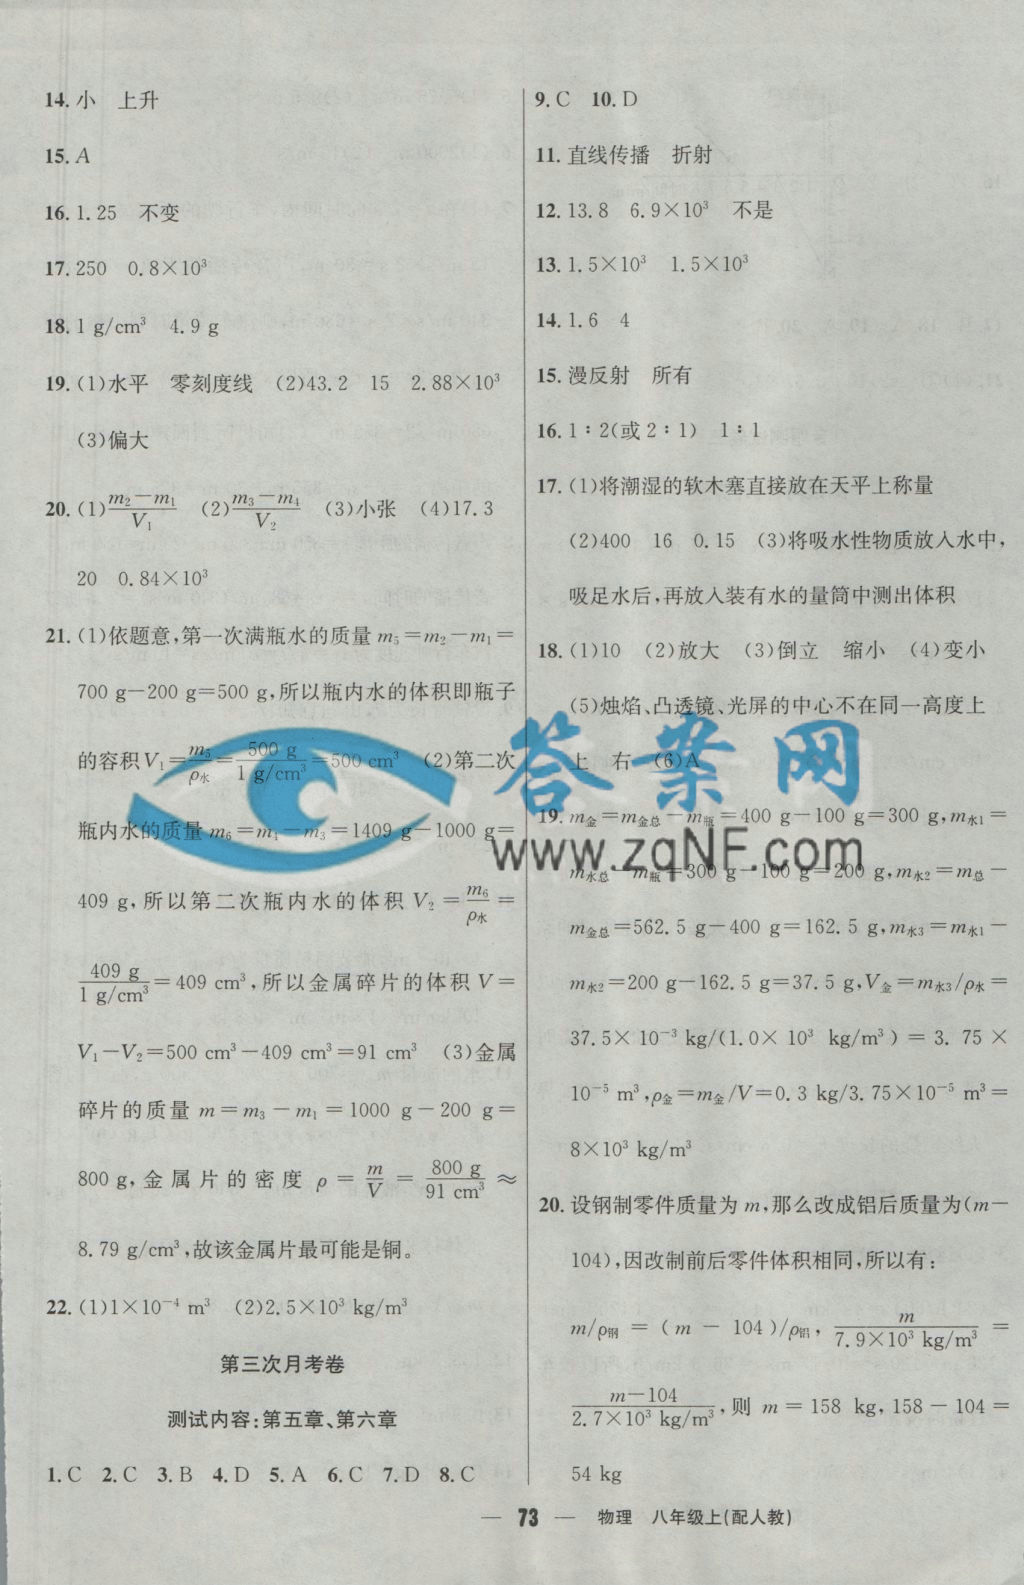 14. 小　上升
15. A
16. 1.25　不变
17. 250　0.8×10³
18. 1 g/cm³　4.9 g
19. (1)水平　零刻度线　(2)43.2　15　2.88×10³
(3)偏大
20. (1)(m₂−m₁)/V₁　(2)(m₃−m₄)/V₂　(3)小张　(4)17.3
20　0.84×10³
21. (1)依题意,第一次满瓶水的质量 m₅=m₂−m₁=
700 g−200 g=500 g,所以瓶内水的体积即瓶子
的容积V₁=m₅/ρ水=500 g/1 g/cm³=500 cm³　(2)第二次
瓶内水的质量 m₆=m₄−m₃=1409 g−1000 g=
409 g,所以第二次瓶内水的体积 V₂=m₆/ρ水=
409 g/1 g/cm³=409 cm³,所以金属碎片的体积 V=
V₁−V₂=500 cm³−409 cm³=91 cm³　(3)金属
碎片的质量 m=m₃−m₁=1000 g−200 g=
800 g,金属片的密度 ρ=m/V=800 g/91 cm³≈
8.79 g/cm³,故该金属片最可能是铜。
22. (1)1×10⁻⁴ m³　(2)2.5×10³ kg/m³
第三次月考卷
测试内容:第五章、第六章
1. C　2. C　3. B　4. D　5. A　6. C　7. D　8. C
9. C　10. D
11. 直线传播　折射
12. 13.8　6.9×10³　不是
13. 1.5×10³　1.5×10³
14. 1.6　4
15. 漫反射　所有
16. 1∶2(或2∶1)　1∶1
17. (1)将潮湿的软木塞直接放在天平上称量
(2)400　16　0.15　(3)将吸水性物质放入水中,
吸足水后,再放入装有水的量筒中测出体积
18. (1)10　(2)放大　(3)倒立　缩小　(4)变小
(5)烛焰、凸透镜、光屏的中心不在同一高度上
上　右　(6)A
19. m金=m金总−m瓶=400 g−100 g=300 g,m水1=
m水总−m瓶=300 g−100 g=200 g,m水2=m总−
m金总=562.5 g−400 g=162.5 g,m水3=m水1−
m水2=200 g−162.5 g=37.5 g,V金=m水3/ρ水=
37.5×10⁻³ kg/(1.0×10³ kg/m³)=3.75×
10⁻⁵ m³,ρ金=m金/V=0.3 kg/3.75×10⁻⁵ m³=
8×10³ kg/m³
20. 设钢制零件质量为 m,那么改成铝后质量为(m−
104),因改制前后零件体积相同,所以有:
m/ρ钢=(m−104)/ρ铝,m/7.9×10³ kg/m³=
m−104/2.7×10³ kg/m³,则 m=158 kg,158−104=
54 kg
答案网
www.zqNF.com
— 73 —　物理　八年级上(配人教)